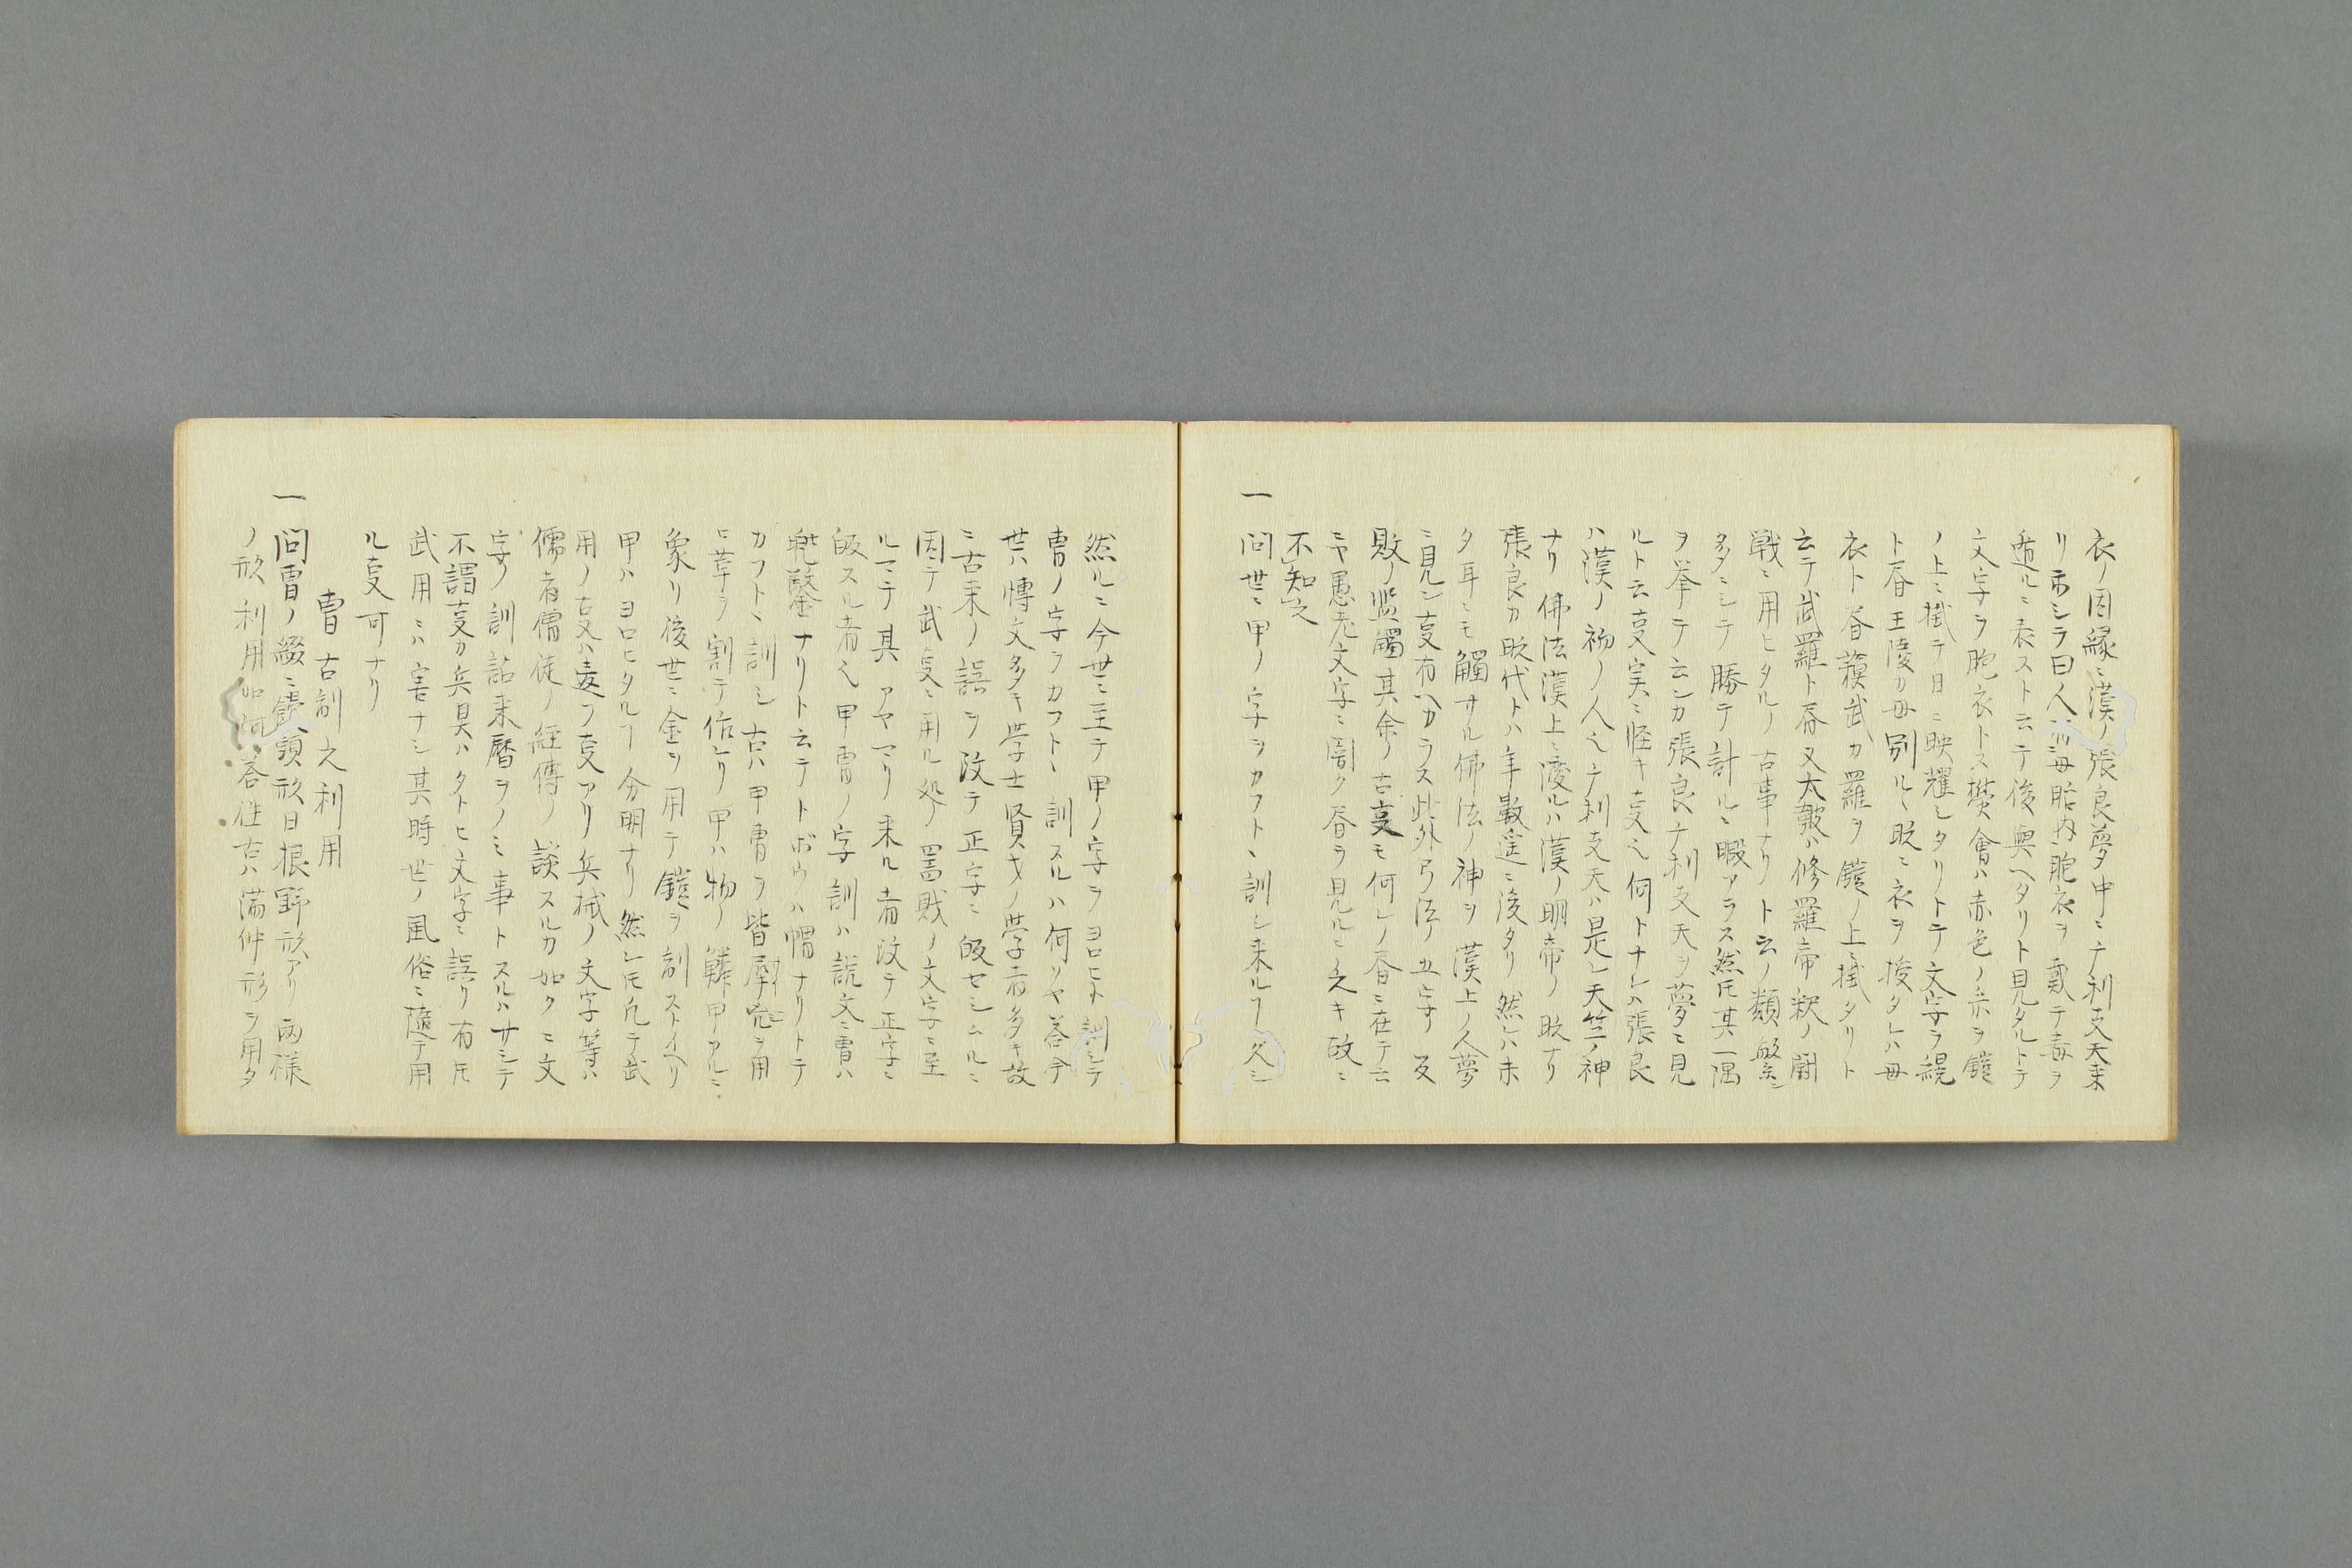 衣ノ因縁ニ漢ノ張良夢中ニナ利支天来
リ示シテ曰人ハ母胎内ニ胞衣ヲ戴テ毒ヲ
遁ルニ表ストニ云テ後與ヘタリト見タルトテ
文字ヲ胞衣トス樊會ハ赤色ノ糸ヲ鎧
ノ上ニ掛テ日ニ映耀シタリトテ文字ヲ縨
ト昏王陵カ母別ルヽ時ニ衣ヲ授タレハ母
衣ト昏蘓武カ羅ヲ鎧ノ上ニ掛タリト
云テ武羅ト昏又大皷ハ修羅帝釈ノ闘
戦ニ用ヒタルノ古事ナリト云ノ類繁シ
多クシテ勝テ計ルニ暇アラス然𪜈其一隅
ヲ挙テ云ンカ張良ナ利支天ヲ夢ニ見
ルト云㕝実ニ怪キ㕝也何トナレハ張良
ハ漢ノ初ノ人也ナ利支天ハ是レ天竺ノ神
ナリ佛法漢土ニ渡ルハ漢ノ明帝ノ時ナリ
張良カ時代トハ年數遙ニ後タリ然レハ未
タ耳ニモ觸サル佛法ノ神ヲ漢土ノ人夢
ニ見ン㕝有ヘカラス此外弓法ノ五字ノ反
敗ノ監觸其余ノ古㕝モ何レノ昏ニ在テ云
ニヤ愚老文字ニ闇ク昏ヲ見ルニ乏キ故ニ
不知之
一 問世ニ甲ノ字ヲカフトヽ訓シ来ルヿ久シ
然ルニ今世ニ至テ甲ノ字ヲヨロヒト訓シテ
冑ノ字ヲカフトヽ訓スルハ何ソヤ答今
世ハ博文多キ学士賢才ノ学者多キ故
ニ古来ノ誤ヲ改テ正字ニ皈セシムルニ
因テ武㕝ニ用ル処ノ器財ノ文字ニ至
ルマテ其アヤマリ来ル者改テ正字ニ
皈スル者也甲冑ノ字訓ハ説文ニ冑ハ
兜鍪ナリト云テトボウハ帽ナリトテ
カフトヽ訓シ古ハ甲冑ヲ皆犀兕ヲ用
ヒ革ヲ割テ作レリ甲ハ物ノ鱗甲アルニ
象リ後世ニ金ヲ用テ鎧ヲ訓ストイヘリ
甲ハヨロヒタルヿ分明ナリ然レ𪜈凡テ武
用ノ㕝ハ違フ㕝アリ兵械ノ文字等ハ
儒者儒徒ノ経傳ノ談スルカ如クニ文
字ノ訓詁来歴ヲノミ事トスルハサシテ
不謂㕝カ兵具ハタトヒ文字ニ誤リ有𪜈
武用ニハ害ナシ其時世ノ風俗ニ随テ用
ル㕝可ナリ
冑古制之利用
一 問冑ノ綴ニ饅頭形日根野形アリ両様
ノ形利用如何答往古ハ満仲形ヲ用タ